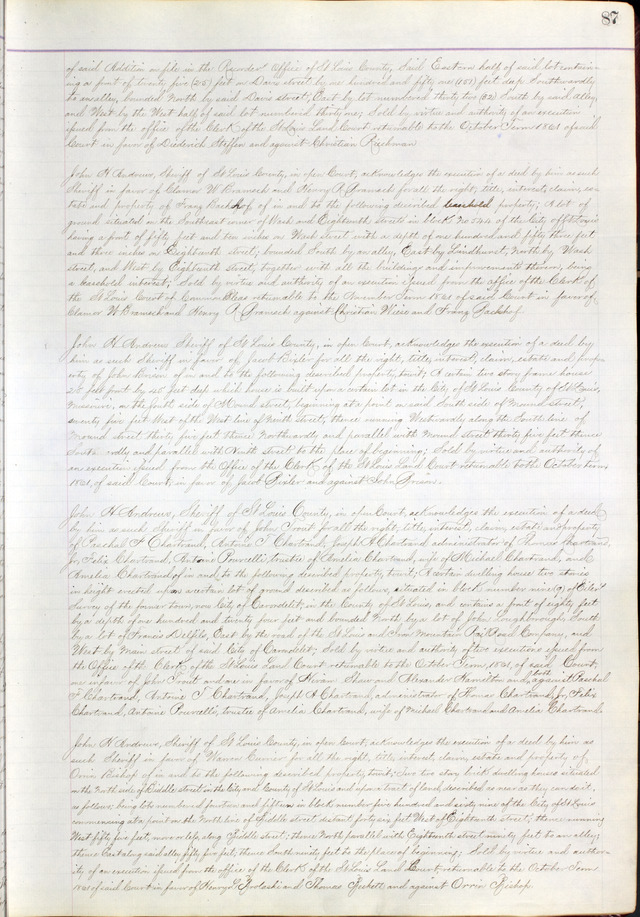 87
of said Addition on file in the Recorders Office of St Louis County, Said Eastern half of said lot contain-
ing a front of twenty five (25) feet on Davis street by one hundred and fifty one (151) feet deep Southwardly
to an alley, bounded North by said Davis street, East by lot numbered thirty two (32) South by said alley,
and West by the West half of said lot numbered thirty one; Sold by virtue and authority of an execution
issued from the office of the Clerk of the St Louis Land Court returnable to the October Term 1861 of said
Court in favor of Diederich Steffen and against Christian
John H Andrews, Sheriff of St Louis County, in open Court, acknowledges the execution of a deed by him as such
Sheriff in favor of Clamor W Bramsch and Henry R for all the right, title, interest, claim, es-
tate and property of Franz of in and to the following described leasehold property; A lot of
ground situated on the Southeast corner of Wash and Eighteenth streets in block No of the City of St Louis
having a front of fifty feet and ten inches on Wash Street with a depth of one hundred and fifty three feet
and three inches on Eighteenth street; bounded South by an alley, East by Lindhurst, North by Wash
street, and West by Eighteenth Street, together with all the buildings and improvements thereon, being
a leasehold interest; Sold by virtue and authority of an execution issued from the office of the Clerk of
the St Louis Court of Common Pleas returnable to the November Term 1861 of said Court in favor of
Clamor W Bramsch and Henry R against Christian and Franz
John H. Andrews Sheriff of St Louis County, in open Court, acknowledges the execution of a deed by
him as such Sheriff in favor of Jacob Bisler for all the right, title, interest, claim, estate and prop-
erty of John of in and to the following described property, towit; A certain two story frame house
feet front by feet deep which house is built upon a certain lot in the City of St Louis County of St Louis,
Missouri, on the South side of Mound street, beginning at a point on said South side of Mound street,
twenty five feet West of the West line of Ninth street, thence running Westwardly along the South line of
Mound street thirty five feet thence Northwardly and parallel with Mound street thirty five feet thence
Southwardly and parallel with Ninth street to the place of beginning; Sold by virtue and authority of
an execution issued from the Office of the Clerk of the St Louis Land Court returnable to the October term
1861, of said Court, in favor of Jacob Bisler and against John
John H Andrews, Sheriff of St Louis County, in open Court, acknowledges the execution of a deed
by him as such Sheriff in favor of John Trout for all the right, title, interest, claim, estate and property
of Paschal F Chartrand, Antoine T Chartrand, Joseph H Chartrand administrator of Thomas Chartrand,
Jr, Felix Chartrand, Antoine Pourcelli, trustee of Amelia Chartrand, wife of Michael Chartrand, and
Amelia Chartrand of in and to the following described property, towit; A certain dwelling house two stories
in height erected upon a certain lot of ground described as follows, situated in block number nine (9) of
Survey of the former town, now City of Carondelet, in the County of St Louis, and contains a front of eighty feet
by a depth of one hundred and twenty four feet and bounded North by a lot of John Loughborough, South
by a lot of Francis, East by the road of the St Louis and Iron Mountain Rail Road Company, and
West by Main street of said City of Carondelet; Sold by virtue and authority of two executions issued from
the Office of the Clerk of the St Louis Land Court returnable to the October Term, 1861, of said Court,
one in favor of John Trout and one in favor of Hiram Shaw and Alexander Hamilton and both against Paschal
F Chartrand, Antoine T Chartrand, Joseph H Chartrand, administrator of Thomas Chartrand, Jr, Felix
Chartrand, Antoine Pourcelli, trustee of Amelia Chartrand, wife of Michael Chartrand and Amelia Chartrand
John H Andrews, Sheriff of St Louis County, in open Court, acknowledges the execution of a deed by him as
such Sheriff in favor of Currier for all the right, title, interest, claim, estate and property of
Orrin Bishop of in and to the following described property, towit; Two two story brick dwelling houses situated
on the North side of Biddle street in the City and County of St Louis and upon a tract of land, described as near as they can do it,
as follows; being lots numbered fourteen and fifteen in block number five hundred and sixty nine of the City of St Louis
commencing at a point on the North line of Biddle street distant forty six feet West of Eighteenth street; thence running
West fifty five feet, more or less, along Biddle street; thence North parallel with Eighteenth street ninety feet to an alley;
thence East along said alley fifty five feet; thence South ninety feet to the place of beginning; Sold by virtue and author-
ity of an execution issued from the office of the Clerk of the St Louis Land Court returnable to the October Term
1861 of said Court in favor of Henry and Thomas and against Orrin Bishop.